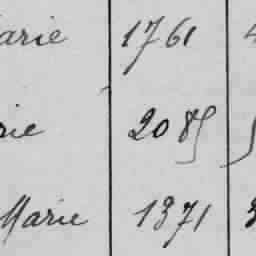 arie 1761
rie 2085
Marie 1371 3